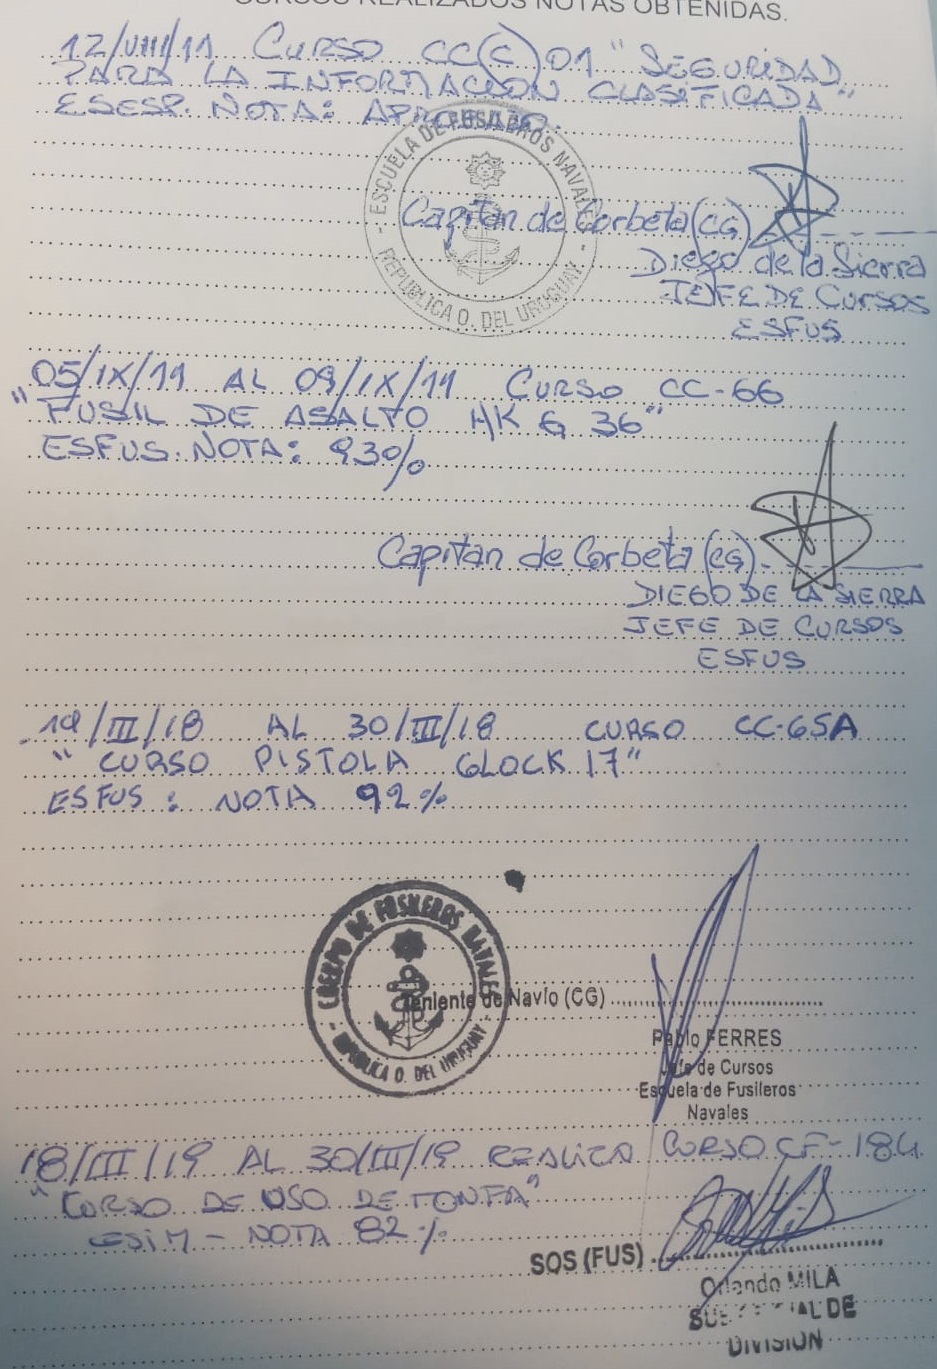 CURSOS REALIZADOS NOTAS OBTENIDAS.
12/VIII/11 CURSO CC(C) 01 "SEGURIDAD
PARA LA INFORMACION CLASIFICADA"
ESESP. NOTA: APROBADO.
ESCUELA DE FUSILEROS NAVALES
- REPUBLICA O. DEL URUGUAY -
Capitan de Corbeta (CG)
Diego de la Sierra
JEFE DE CURSOS
ESFUS
05/IX/11 AL 09/IX/11 CURSO CC-66
"FUSIL DE ASALTO HK G 36"
ESFUS. NOTA: 93%
Capitan de Corbeta (CG)
DIEGO DE LA SIERRA
JEFE DE CURSOS
ESFUS
19/III/18 AL 30/III/18 CURSO CC-65A
"CURSO PISTOLA GLOCK 17"
ESFUS: NOTA 92%
CUERPO DE FUSILEROS NAVALES
- REPUBLICA O. DEL URUGUAY -
Teniente de Navío (CG)
Pablo FERRES
Jefe de Cursos
Escuela de Fusileros
Navales
18/III/19 AL 30/III/19 REALIZA CURSO CF-184
"CURSO DE USO DE TONFA"
ESIM - NOTA 82%
SOS (FUS)
Orlando MILA
DE
DIVISION